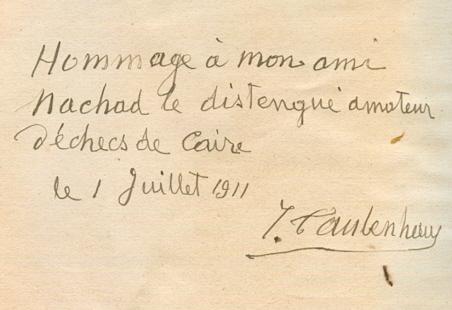 Hommage à mon ami
Nachad le distengué amateur
d'échecs de Caire
le 1 Juillet 1911
J. Taubenhaus